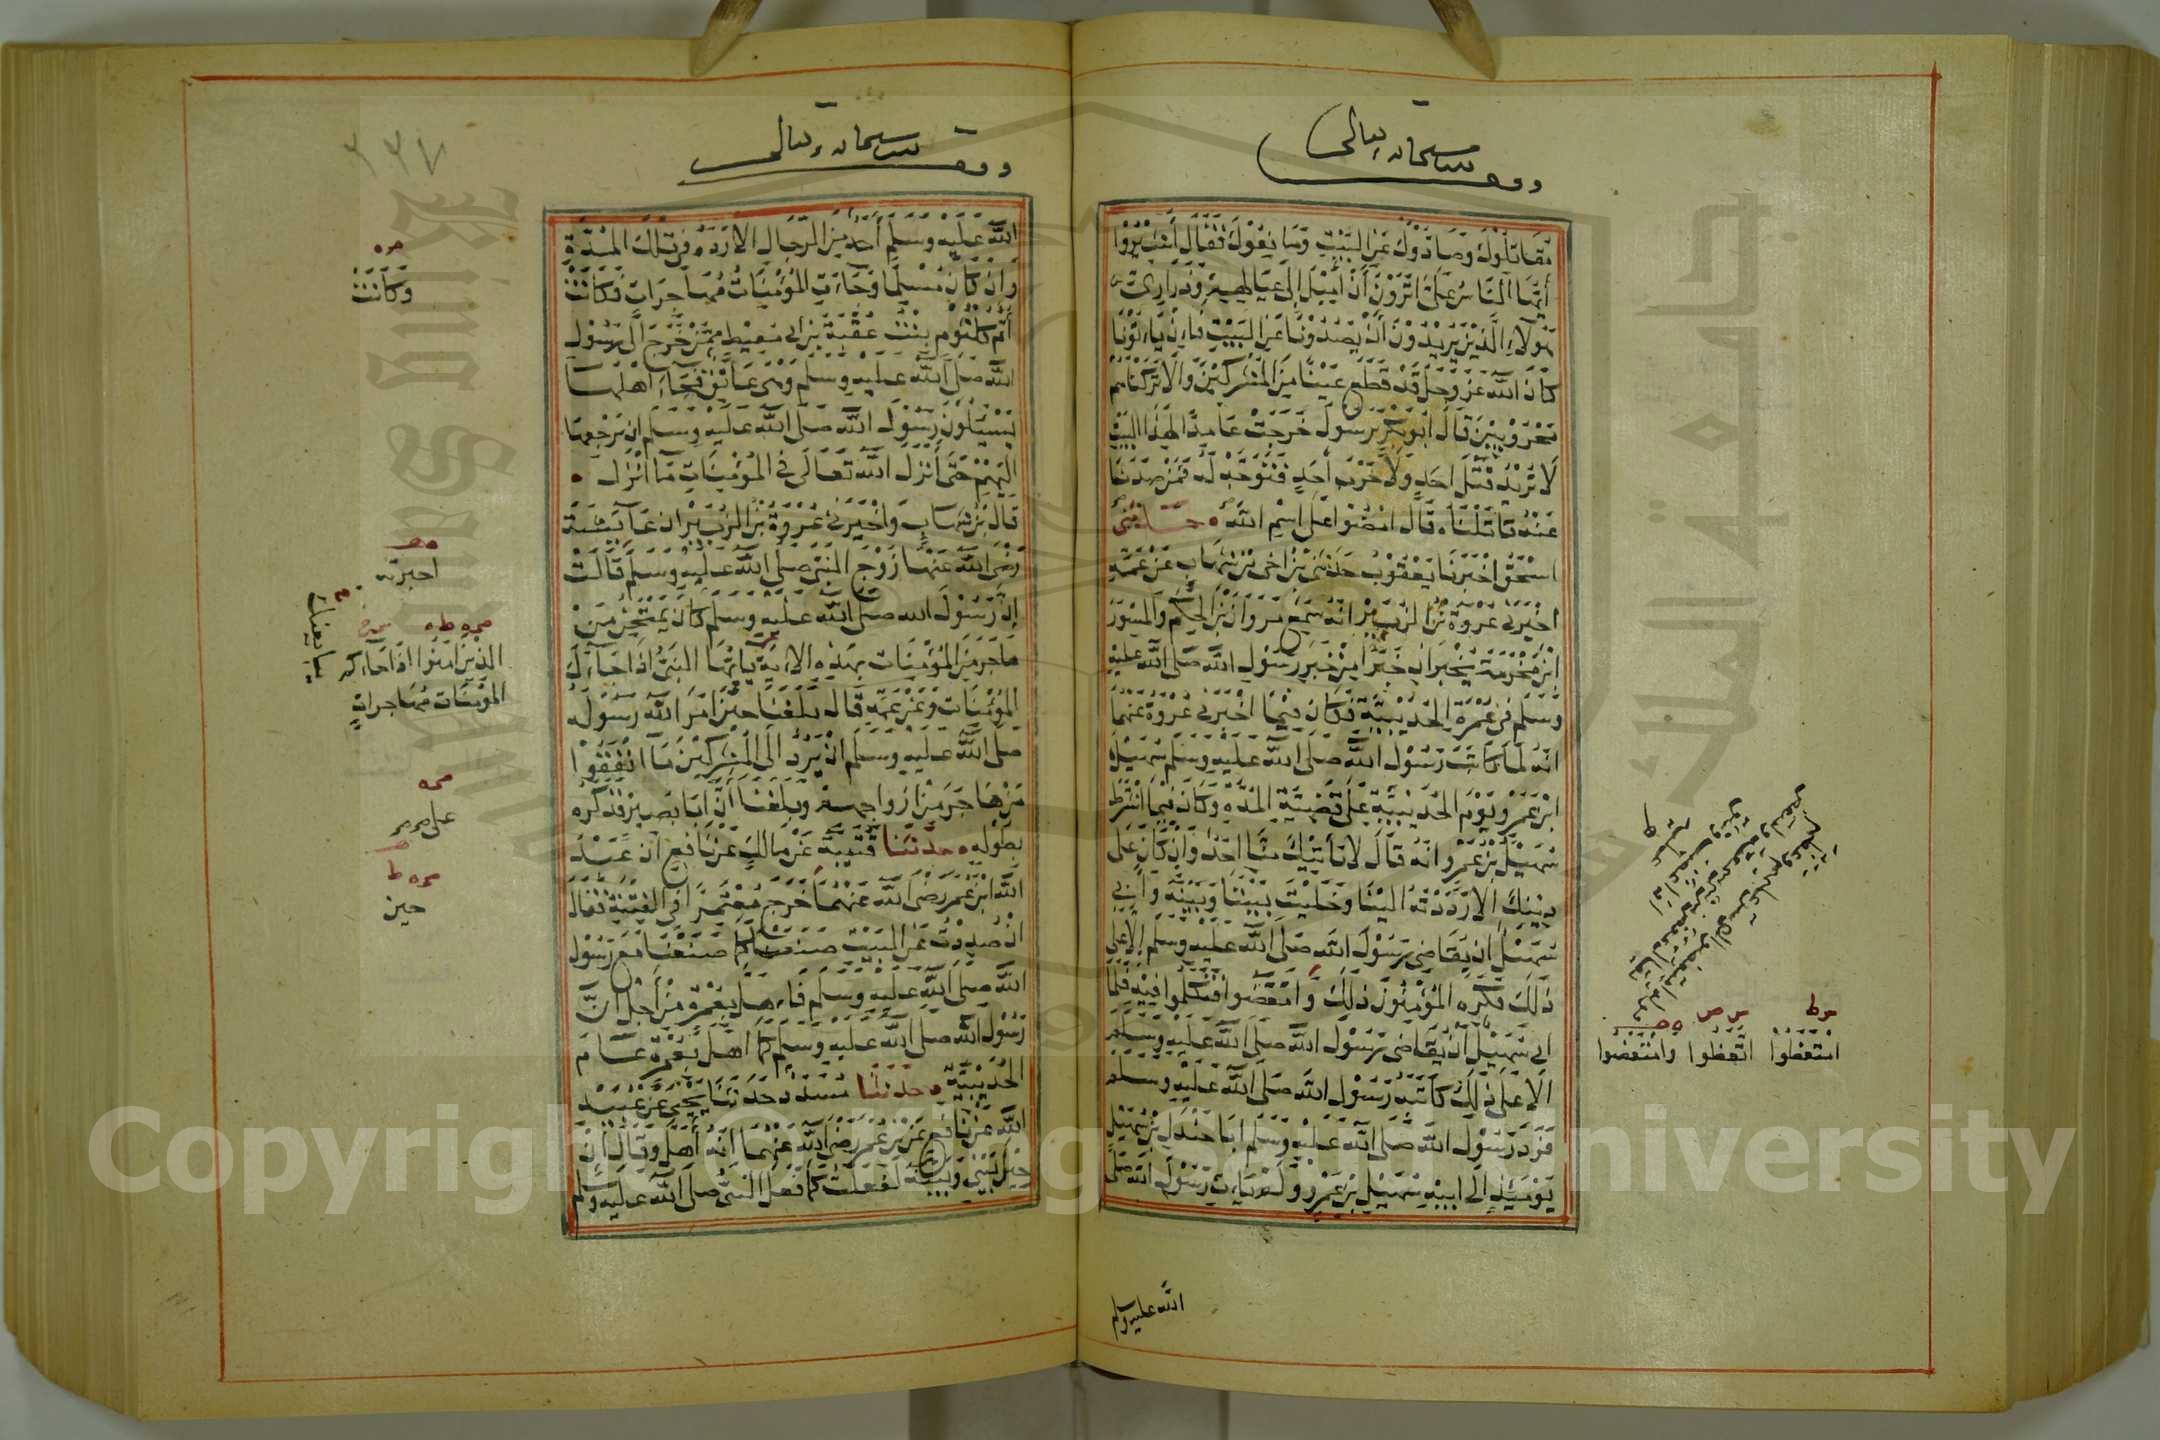 وقف لله سبحانه وتعالى
مُقَاتِلُوكَ وَصَادُّوكَ عَنِ البَيْتِ وَمَا نِعُوكَ فَقَالَ أَشِيْرُوا
أَيُّهَا النَّاسُ عَلَيَّ اَتَرَوْنَ أَنْ أَمِيْلَ إِلَى عِيَالِهِمْ وَذَرَارِيِّ
هَؤُلَاءِ الَّذِيْنَ يُرِيْدُوْنَ أَنْ يَصُدُّوْنَا عَنِ البَيْتِ فَاِنْ يَاْتُوْنَا
كَانَ اللّٰهُ عَزَّ وَجَلَّ قَدْ قَطَعَ عَيْنًا مِنَ المُشْرِكِيْنَ وَاِلَّا تَرَكْنَاهُمْ
مَحْرُوْبِيْنَ قَالَ اَبُوْ بَكْرٍ يَرَسُولَ خَرَجْتَ عَامِدًا لِهَذَا البَيْتِ
لَا تُرِيْدُ قَتْلَ اَحَدٍ وَلَا حَرْبَ أَحَدٍ فَتَوَجَّهْ لَهُ فَمَنْ صَدَّنَا
عَنْهُ قَاتَلْنَاهُ قَالَ امْضُوْا عَلَى اسْمِ اللّٰهِ حدثنى
اسْحٰقُ اخْبَرَنَا يَعْقُوْبُ حَدَّثَنِي ابْنُ اَخِي بْنِ شِهَابٍ عَنْ عَمِّهِ
اخْبَرَنِي عُرْوَةُ بْنُ الزُّبَيْرِ اَنَّهُ سَمِعَ مَرْوَانَ بْنَ الحَكَمِ وَالمِسْوَرَ
ابْنَ مَخْرَمَةَ يُخْبِرَانِ خَبَرًا مِنْ خَبَرِ رَسُوْلِ اللّٰهِ صَلَّى اللّٰهُ عَلَيْهِ
وَسَلَّمَ فِي عُمْرَةِ الحُدَيْبِيَّةِ فَكَانَ فِيْمَا اَخْبَرَنِي عُرْوَةُ عَنْهُمَا
اَنَّهُ لَمَّا كَاتَبَ رَسُوْلُ اللّٰهِ صَلَّى اللّٰهُ عَلَيْهِ وَسَلَّمَ سُهَيْلَ
ابْنَ عَمْرٍو يَوْمَ الحُدَيْبِيَّةِ عَلَى قَضِيَّةِ المُدَّةِ وَكَانَ فِيْمَا اشْتَرَطَ
سُهَيْلُ بْنُ عَمْرٍو اَنَّهُ قَالَ لَا يَأْتِيْكَ مِنَّا اَحَدٌ وَاِنْ كَانَ عَلَى
دِيْنِكَ اِلَّا رَدَدْتَهُ اِلَيْنَا وَخَلَّيْتَ بَيْنَنَا وَبَيْنَهُ وَاَبَى
سُهَيْلٌ اَنْ يُقَاضِيَ رَسُوْلَ اللّٰهِ صَلَّى اللّٰهُ عَلَيْهِ وَسَلَّمَ اِلَّا عَلَى
ذٰلِكَ فَكَرِهَ المُؤْمِنُوْنَ ذٰلِكَ وَامَّعَضُوا فَتَكَلَّمُوا فِيْهِ فَلَمَّا
اَبَى سُهَيْلٌ أَنْ يُقَاضِيَ رَسُوْلَ اللّٰهِ صَلَّى اللّٰهُ عَلَيْهِ وَسَلَّمَ
اِلَّا عَلَى ذٰلِكَ كَاتَبَهُ رَسُوْلُ اللّٰهِ صَلَّى اللّٰهُ عَلَيْهِ وَسَلَّمَ
فَرَدَّ رَسُوْلُ اللّٰهِ صَلَّى اللّٰهُ عَلَيْهِ وَسَلَّمَ اَبَا جَنْدَلِ بْنَ سُهَيْلٍ
يَوْمَئِذٍ اِلَى اَبِيْهِ سُهَيْلِ بْنِ عَمْرٍو وَلَمْ يَأْتِ رَسُوْلَ اللّٰهِ صَلَّى
امْتَعَظُوْا
اتَّعَظُوا
وَامْتَعَضُوا
اللّٰه عليه وسلم
وقف لله سبحانه وتعالى
٣٣٧
اللّٰهُ عَلَيْهِ وَسَلَّمَ أَحَدٌ مِنَ الرِّجَالِ اِلَّا رَدَّهُ فِي تِلْكَ المُدَّةِ
وَاِنْ كَانَ مُسْلِمًا وَجَاءَتِ المُؤْمِنَاتُ مُهَاجِرَاتٍ فَكَانَتْ
أُمُّ كُلْثُوْمٍ بِنْتُ عُقْبَةَ بْنِ اَبِي مُعَيْطٍ مِمَّنْ خَرَجَ اِلَى رَسُوْلِ
اللّٰهِ صَلَّى اللّٰهُ عَلَيْهِ وَسَلَّمَ وَهِيَ عَاتِقٌ فَجَاءَ اَهْلُهَا
يَسْئَلُوْنَ رَسُوْلَ اللّٰهِ صَلَّى اللّٰهُ عَلَيْهِ وَسَلَّمَ اَنْ يَرْجِعَهَا
اِلَيْهِمْ حَتَّى أَنْزَلَ اللّٰهُ تَعَالَى فِي المُؤْمِنَاتِ مَا اَنْزَلَ
قَالَ بْنُ شِهَابٍ وَاَخْبَرَنِي عُرْوَةُ بْنُ الزُّبَيْرِ اَنَّ عَايِشَةَ
رَضِيَ اللّٰهُ عَنْهَا زَوْجَ النَّبِيِّ صَلَّى اللّٰهُ عَلَيْهِ وَسَلَّمَ قَالَتْ
اِنَّ رَسُوْلَ اللّٰهِ صَلَّى اللّٰهُ عَلَيْهِ وَسَلَّمَ كَانَ يَمْتَحِنُ مَنْ
هَاجَرَ مِنَ المُؤْمِنَاتِ بِهَذِهِ الْاٰيَةِ يَااَيُّهَا النَّبِيُّ اِذَا جَاءَكَ
المُؤْمِنَاتُ وَعَنْ عَمِّهِ قَالَ بَلَغَنَا حِيْنَ اَمَرَ اللّٰهُ رَسُوْلَهُ
صَلَّى اللّٰهُ عَلَيْهِ وَسَلَّمَ اَنْ يَرُدَّ اِلَى المُشْرِكِيْنَ مَا اَنْفَقُوْا
مَنْ هَاجَرَ مِنْ اَزْوَاجِهِمْ وَبَلَغَنَا اَنَّ اَبَا بَصِيْرٍ فَذَكَرَهُ
بِطُوْلِهِ حَدَّثَنَا قُتَيْبَةُ عَنْ مَالِكٍ عَنْ نَافِعٍ اَنَّ عَبْدَ
اللّٰهِ ابْنَ عُمَرَ رَضِيَ اللّٰهُ عَنْهُمَا خَرَجَ مُعْتَمِرًا فِي الفِتْنَةِ فَقَالَ
اِنْ صُدِدْتُ عَنِ البَيْتِ صَنَعْنَا كَمَا صَنَعْنَا مَعَ رَسُوْلِ
اللّٰهِ صَلَّى اللّٰهُ عَلَيْهِ وَسَلَّمَ فَاَهَلَّ بِعُمْرَةٍ مِنْ أَجْلِ اَنَّ
رَسُوْلَ اللّٰهِ صَلَّى اللّٰهُ عَلَيْهِ وَسَلَّمَ كَانَ اَهَلَّ بِعُمْرَةٍ عَامَ
الحُدَيْبِيَّةِ حَدَّثَنَا مُسَدَّدٌ حَدَّثَنَا يَحْيَى عَنْ عُبَيْدِ
اللّٰهِ عَنْ نَافِعٍ عَنِ بْنِ عُمَرَ رَضِيَ اللّٰهُ عَنْهُمَا اَنَّهُ أَهَلَّ وَقَالَ اِنْ
حِيْلَ بَيْنِي وَبَيْنَهُ لَفَعَلْتُ كَمَا فَعَلَ النَّبِيُّ صَلَّى اللّٰهُ عَلَيْهِ وَسَلَّمَ
وَكَانَتْ
اخبرته
الَّذِيْنَ اٰمَنُوا اِذَا جَاءَكُمُ
المُؤْمِنَاتُ مُهَاجِرَاتٍ
على
حين
جامعة الملك سعود
King Saud University
Copyright © King Saud University